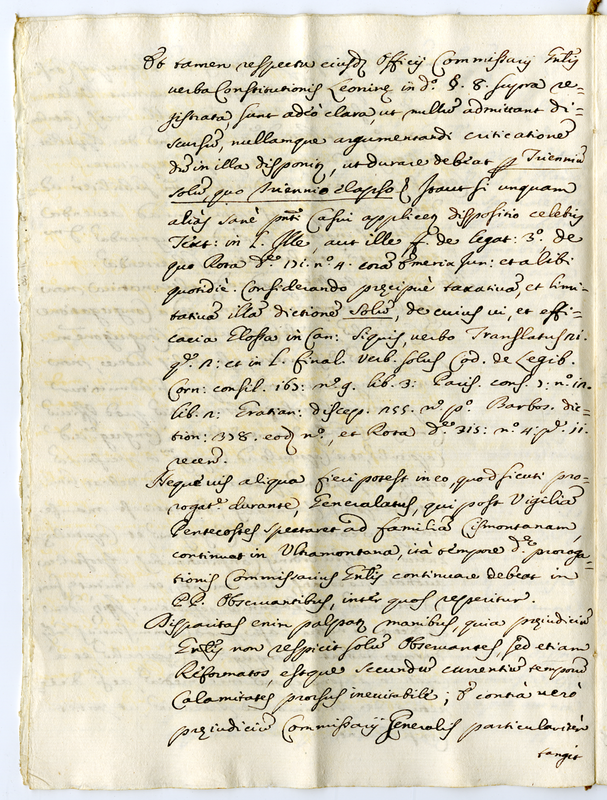 Et tamen respectu eiusdẽ Officij Commissarij Gnlis
verba Constitutionis Leoninę in d.º §. 8. supra re=
gistrata, sunt adeò clara, ut nullũ admittant di=
scursũ, nullamque argumentandi criticationẽ
dũ in illa disponit, ut durare debeat Trienniũ
solũ, quo Triennio elapso Itaut si unquam
aliàs sanè pñti Casui applicet dispositio celebris
Text: in L. Ille, aut ille ff. de legat: 3.º de
quo Rota d. 171. n.º 4. corã Emerix Jun: et alibi
quotidiè. Considerando pręcipuè taxatiuã, et limi=
tatiuã illã dictionẽ Solũ, de cuius ui, et effi=
cacia Glossa in Can: Siquis, verbo Translatus 21.
q. 2: et in L. final. verb. solus Cod. de Legib.
Corn: consil. 167: n.º 9. lib. 3: Paris. cons. 7: n.º 12.
lib. 2: Gratian: discep. 255. n.º p.º Barbos. dic=
tion: 378. eod n.º, et Rota d. 315: n.º 4: p. 11.
recen.
Neque uis aliqua fieri potest in eo, quod sicuti pro=
rogat.e durante, Generalatus, qui post Vigiliã
Pentecostes spectaret ad familiã Cismontanam,
continuat in Vltramontana, ità tẽmpore d.ę proroga=
tionis Commissarius Gnlis continuare debeat in
PP. Obseruantibus, inter quos reperitur.
Disparitas enim palpat manibus, quia pręiudiciũ
Gnlis non respicit solũ Obseruantes, sed etiam
Reformatos, estque secundũ currentiũ temporũ
Calamitates prorsus ineuitabile; è contrà uerò
pręiudiciũ Commissarij Generalis particularitèr
tangit